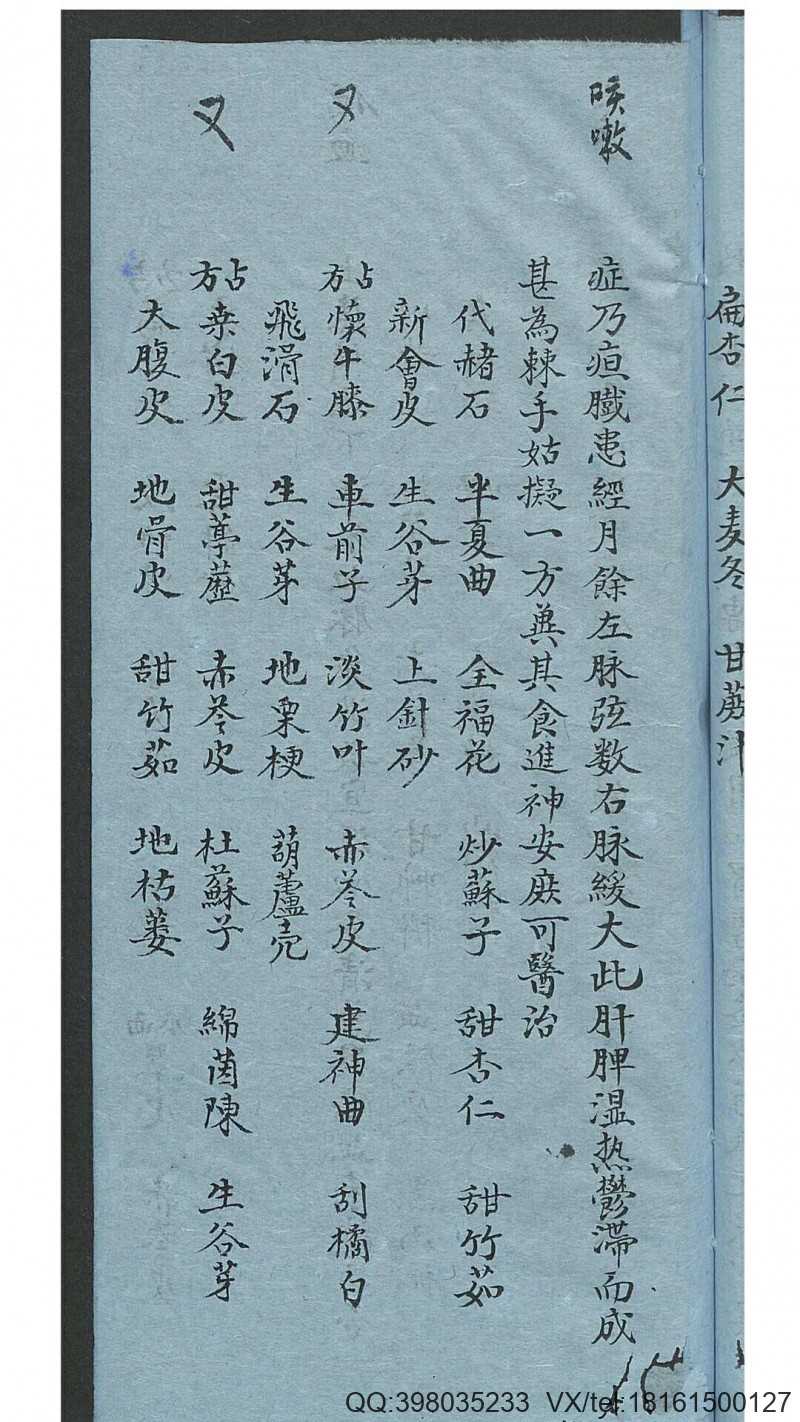 扁杏仁　大麦冬　甘蔗汁
咳嗽
症乃疸臌患經月餘左脉弦数右脉緩大此肝脾温热鬱滞而成
甚為棘手姑擬一方兾其食進神安庶可醫治
代赭石　半夏曲　全福花　炒蘇子　甜杏仁　甜竹茹
新會皮　生谷芽　上針砂
又
占方　懷牛膝　車前子　淡竹叶　赤苓皮　建神曲　刮橘白
飛滑石　生谷芽　地栗梗　葫蘆壳
又
占方　桒白皮　甜葶藶　赤苓皮　杜蘇子　綿茵陳　生谷芽
大腹皮　地骨皮　甜竹茹　地枯蒌
QQ:398035233 VX/tel:18161500127